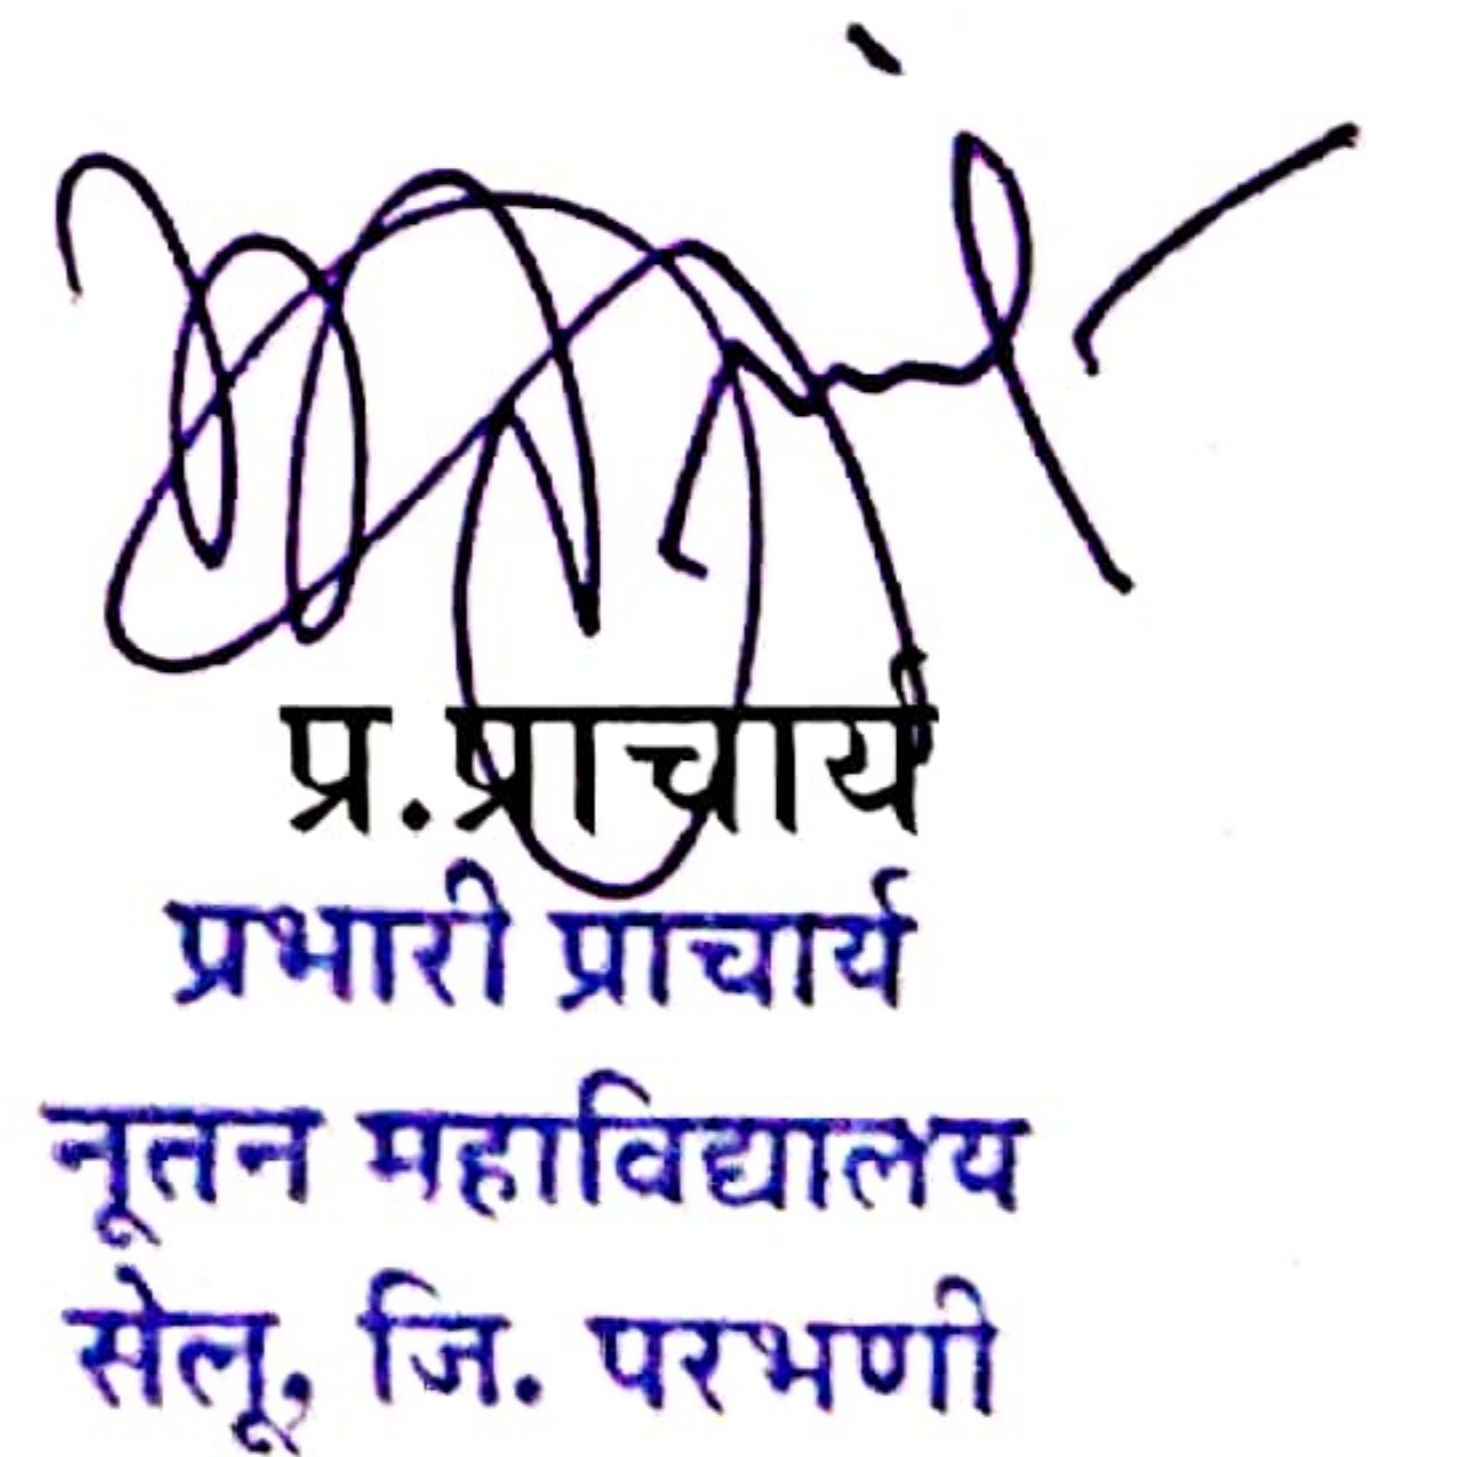 प्र.प्राचार्य
प्रभारी प्राचार्य
नूतन महाविद्यालय
सेलू, जि. परभणी